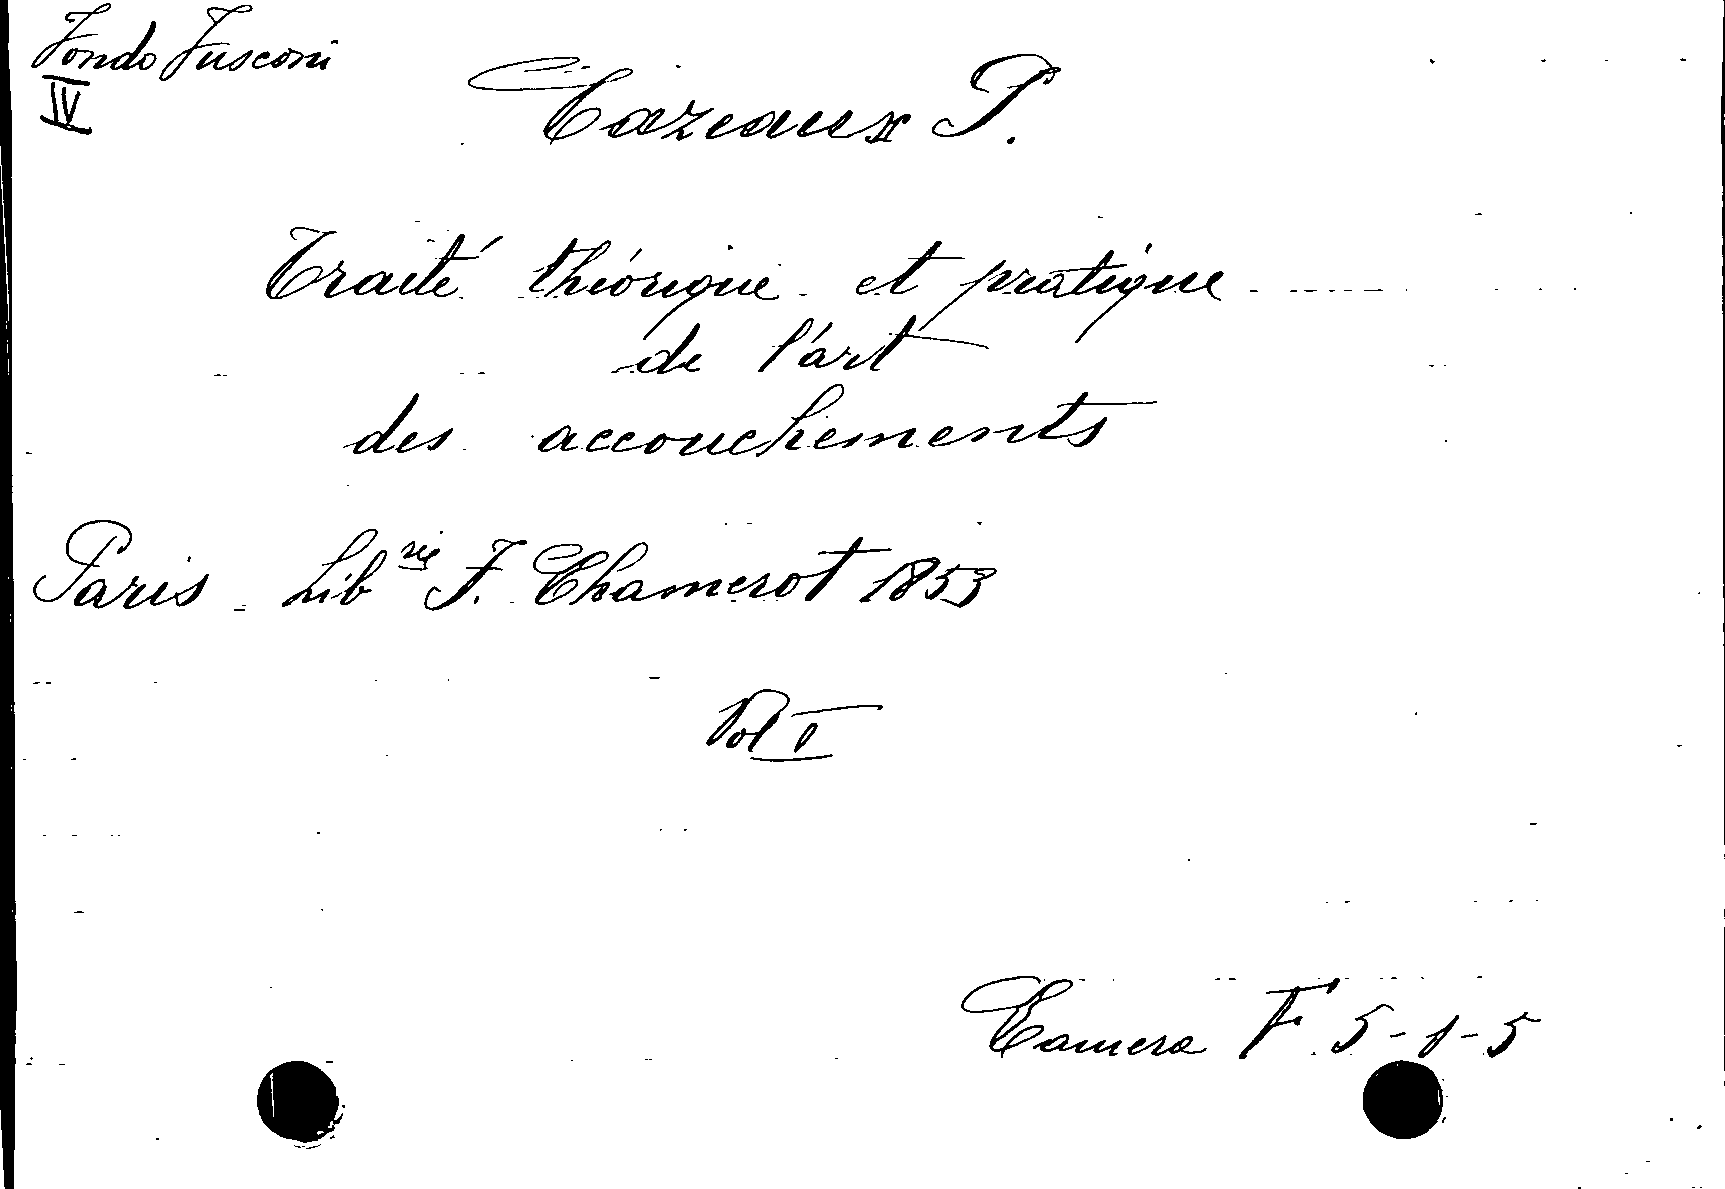 Fondo Fusconi
IV
Cazeaux P.
Traité théorique et pratique
de l'art
des accouchements
Paris - Lib^rie F. Chamerot 1853
Vol I
Camera F. 5-1-5